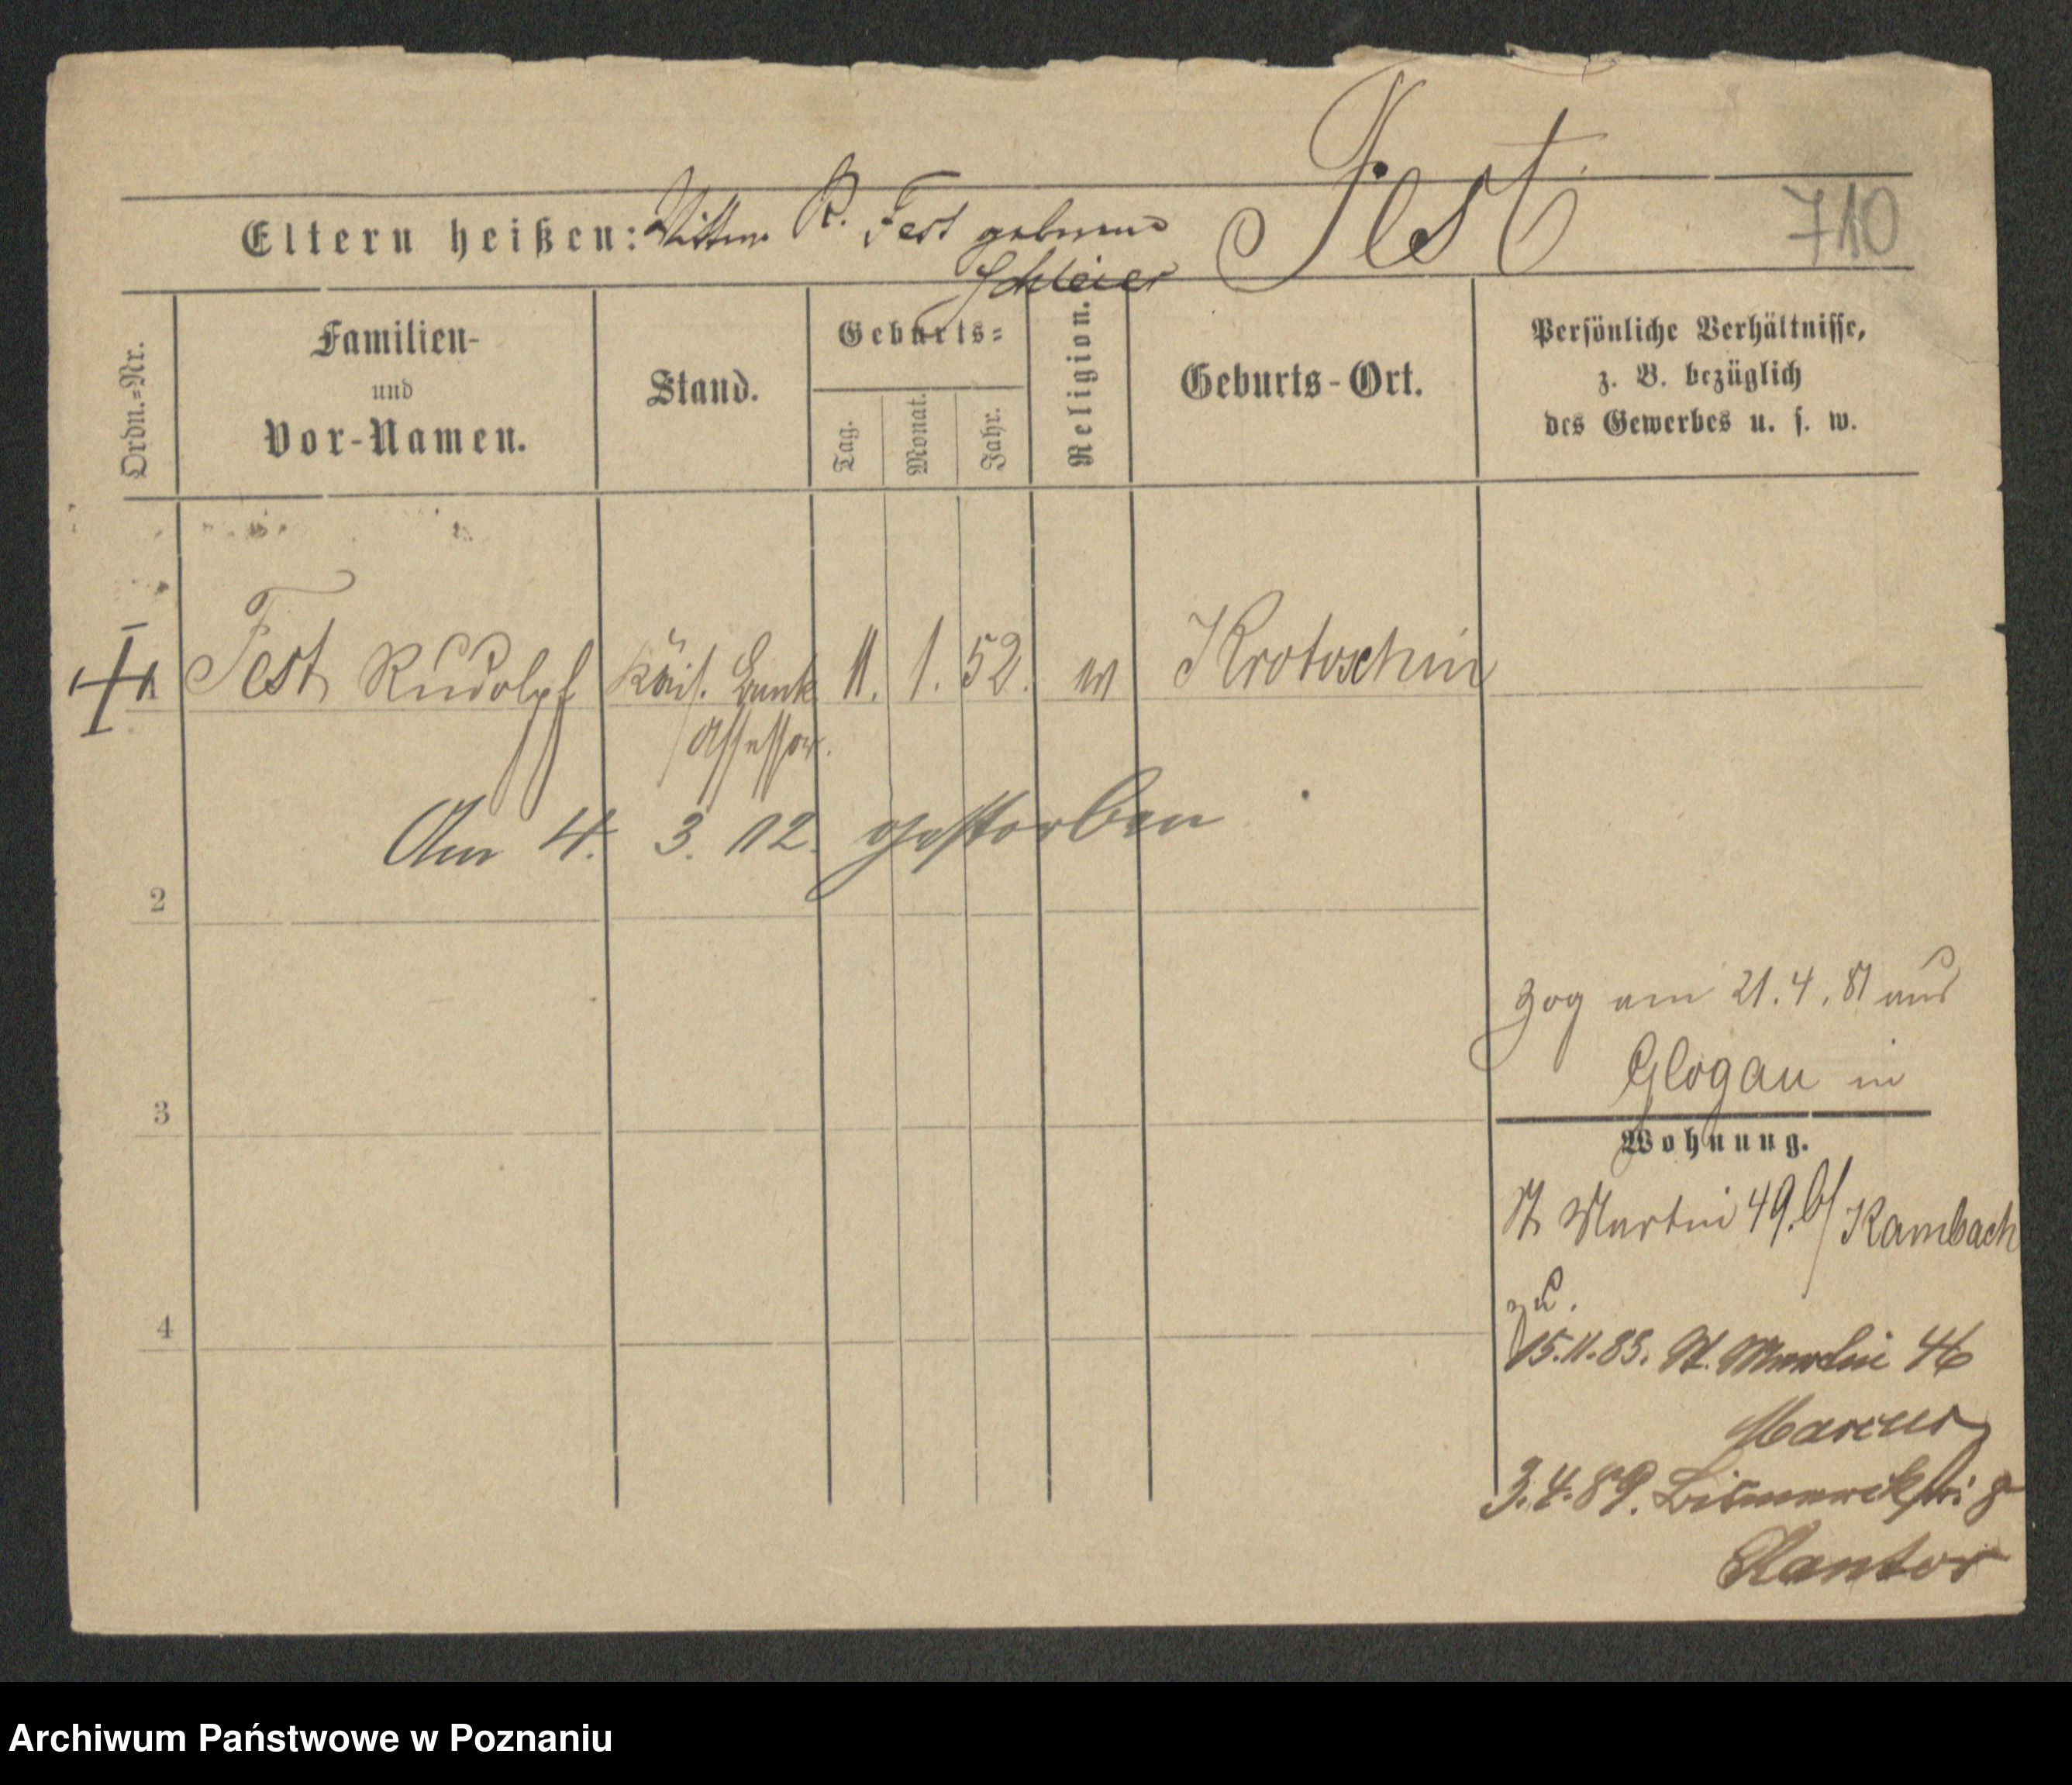 Fest
710
Eltern heißen: R. Fest geborene
Schleier
Ordn.=Nr.
Familien-
und
Vor-Namen.
Stand.
Geburts=
Tag.
Monat.
Jahr.
Religion.
Geburts-Ort.
Persönliche Verhältnisse,
z. B. bezüglich
des Gewerbes u. s. w.
1 Fest Rudolf Kais. Bank 11. 1. 52. Krotoschin
Assessor.
Am 4. 3. 12. gestorben
2
zog am 21. 4. 81 aus
Glogau in
3
Wohnung.
St Martin 49. b/ Kambach
zu.
4
15.11.83. St. Martin 46
Marcus
3.4.89. Bismarckstr. 9
Kantor
Archiwum Państwowe w Poznaniu